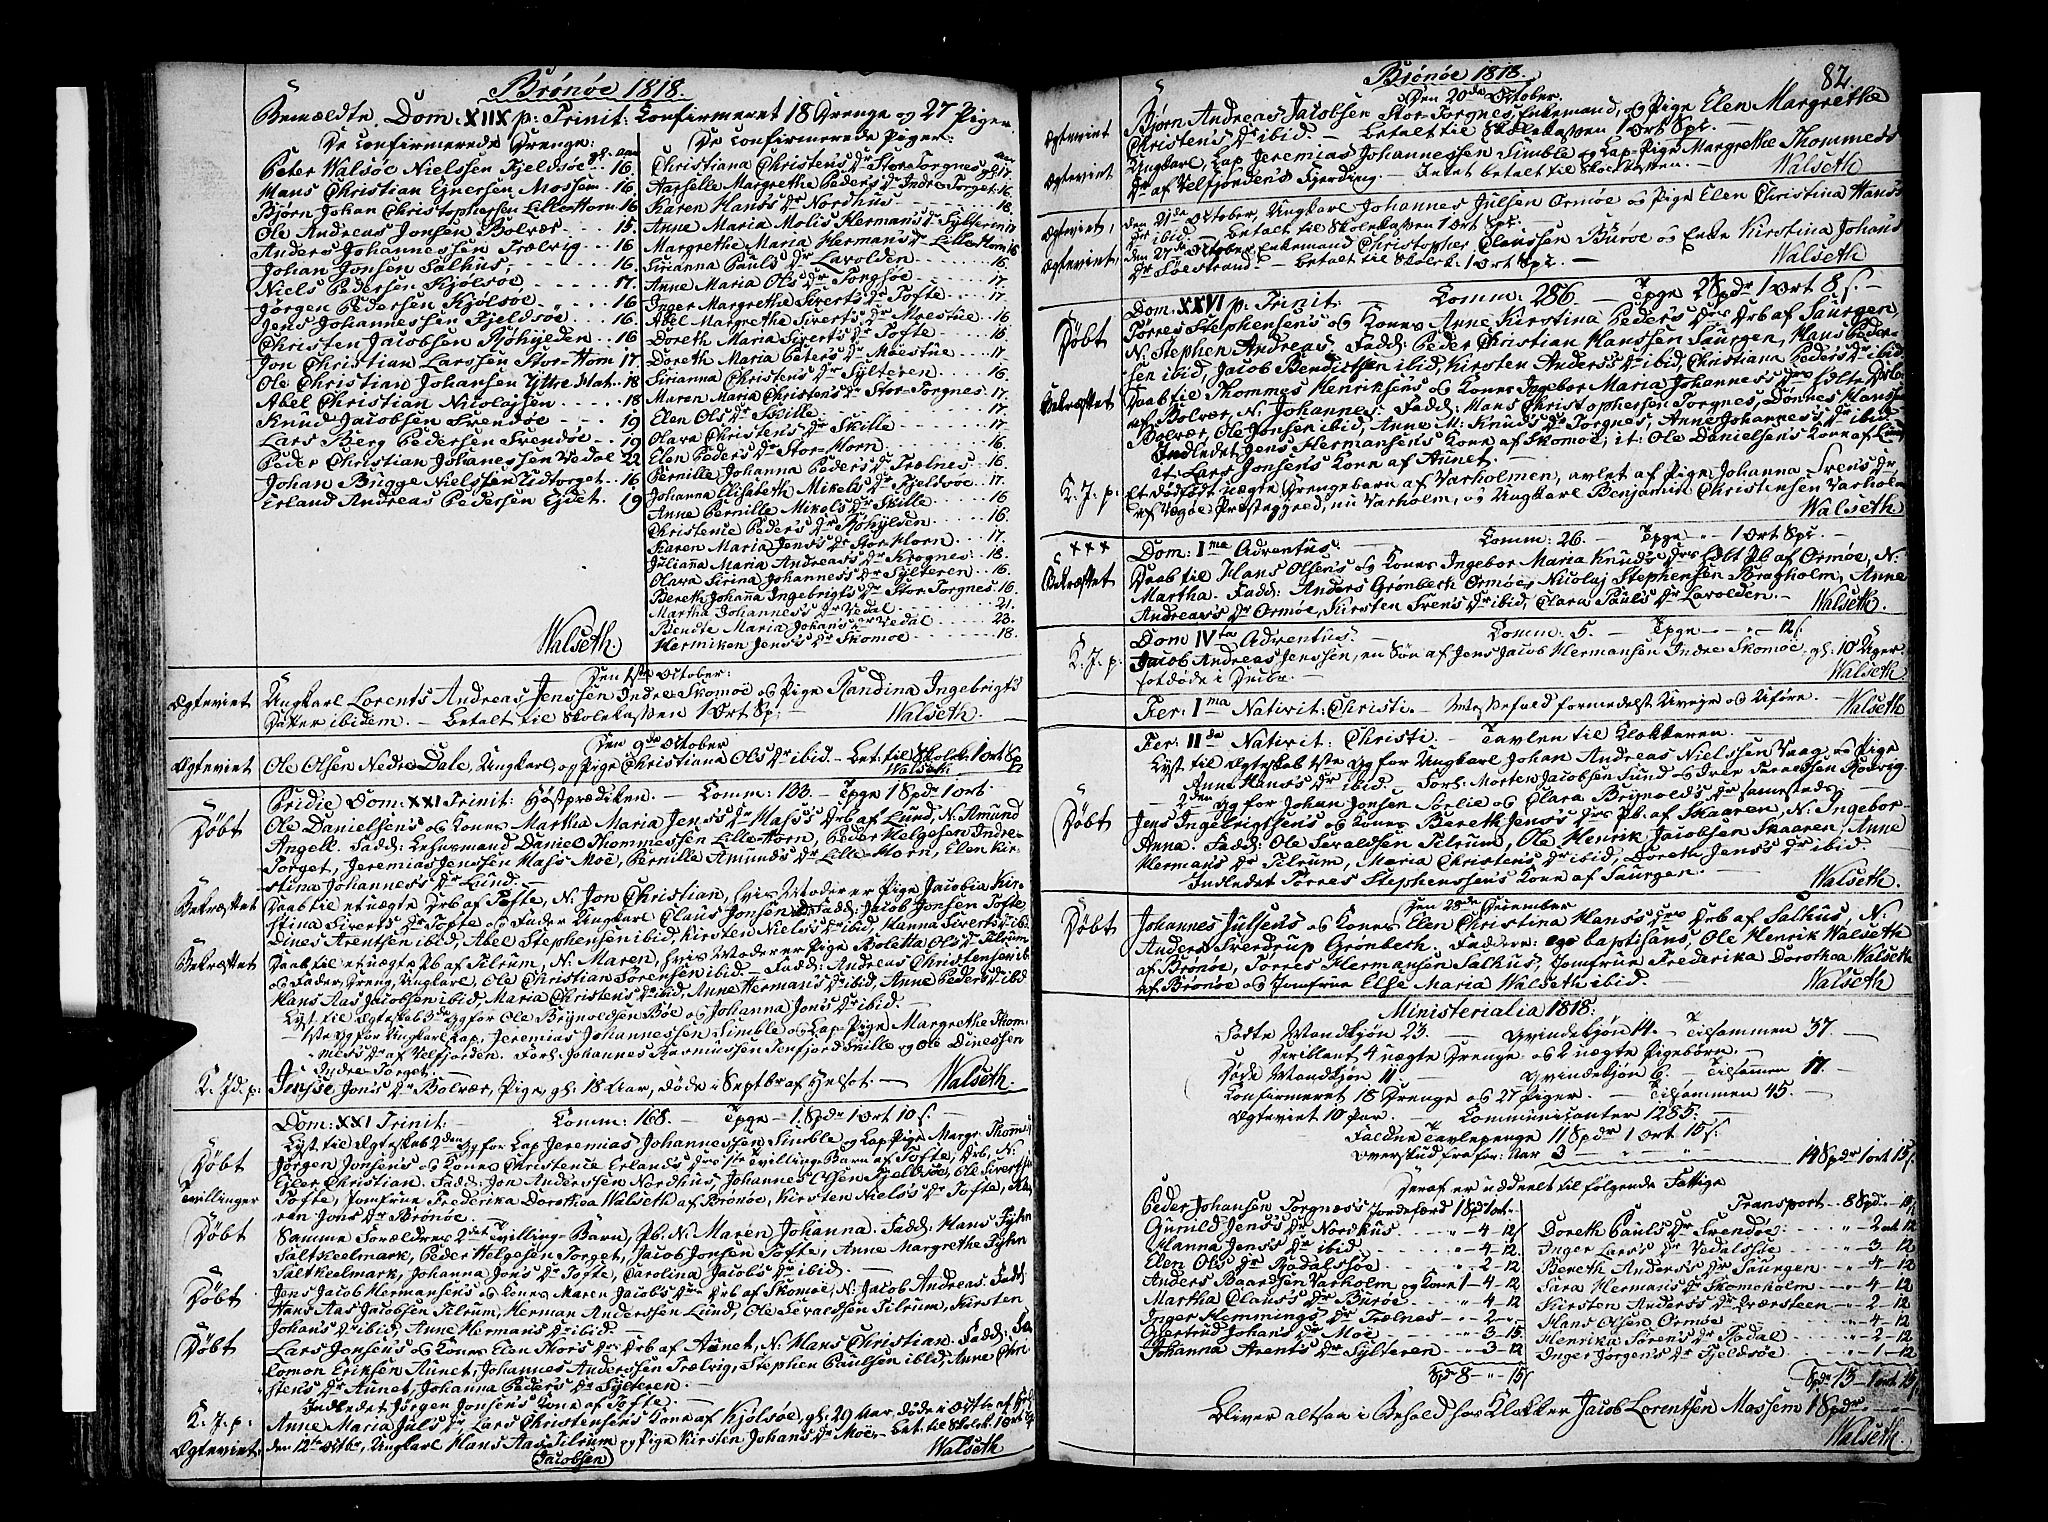 Brönöe 1818.
Bemældte, Dom: XIIX p: Trinit: Confirmeret 18 Drenge og 27 Piger.
De confirmerede Drenge: gl. Aar
Peter Walsöe Nielssen Tjeldsöe 16.
Hans Christian Ejnersen Mossem 16.
Bjørn Johan Christophersen Lille-Horn 16
Ole Andreas Jonsen Bolvær 15
Anders Johannessen Trælvig 16
Johan Jonsen Salhus, 16.
Niels Pedersen Kjölsöe 17.
Jörgen Pedersen Kjölsöe 16
Jens Johannessen Tjeldsöe 16
Christen Jacobsen 16
Jon Christian Larssen Stor-Horn 17
Ole Christian Johansen Yttre 18
Abel Christian Nicolajsen 18
Knud Jacobsen Trendöe 19
Lars Berg Pedersen Trendöe 19
Peder Christian Johanessen Vedal 22
Johan Brigge Nielsen Tidtorget 16
Erland Andreas Pedersen Eidet. 19
Walseth.
De confirmerede Piger: Aar
Christiana Christens Dr Stor-Torgnes gl. 17.
Margrethe Peders Dr Indre Torget 16.
Karen Hans's Dr Nordhus 18.
Anne Maria Molis Hermans Dr Sylteren 17
Margrethe Maria Hermans Dr Lille-Horn 16
Sirianna Pauls Dr Lavolden 16.
Anne Maria Ols Dr Torgsöe 17.
Inger Margretha Siverts Dr Tofte 17.
Abel Margretha Siverts Dr Moestue 16
Doreth Maria Siverts Dr Tofte 16
Doreth Maria Peters Dr Moestue 17.
Sirianna Christens Dr Sylteren 16.
Maren Maria Christens Dr Stor-Torgnes 17.
Elen Ols Dr Skille 17.
Olava Christens Dr Skille 17.
Elen Peders Dr Stor-Horn 16.
Pernille Johanna Peders Dr Trælnes 16.
Johanna Elisabeth Mikels Dr Tjeldsöe 17.
Anne Pernille Mikels Dr Skille 16
Christence Peders Dr 16.
Karen Maria Jens Dr Stor-Horn 17.
Julianna Maria Andreas's Dr Krognes 18.
Olava Sirina Johannes's Dr Sylteren 16.
Bereth Johanna Ingebrigts Dr Stor-Torgnes 16.
Martha Johannes's Dr Vedal 21.
Bendte Maria Johans Dr Vedal 23.
Henniken Jens's Dr Skomöe 18.
Den 1ste October:
Ægteviet Ungkarl Lorents Andreas Jenssen Indre Skomöe og Pige Randina Ingebrigts
Datter ibidem. - Betalt til Skolekassen 1 Ort Sp: - Walseth.
Den 9de October
Ægteviet Ole Olsen Nedre Dale, Ungkarl, og Pige Christiana Ols Dr ibid. - Bet: til Skolek: 1 Ort Sp
Walseth.
Pridie Dom: XXI Trinit: Höstprædiken. - Comm: 133. - Tpge 1 Spdr 1 ort.
Döbt Ole Danielsen's og Kones Martha Maria Jens's Dr Hass's Drb af Lund, N: Amund
Angell. Fadd: Lehnsmand Daniel Thommessen Lille-Horn, Peder Helgesen Indre-
Torget, Jeremias Jenssen Hass Moe, Pernille Amunds Dr Lille-Horn, Elen Kir-
stina Johannes's Dr Lund.
Bekræftet Daab til et uægte Drb af Tofte, N: Jon Christian, hvis Moder er Pige Jacobia Kir-
stina Siverts Dr Tofte og Fader Ungkarl Claus Jonsen. Fadd: Jacob Jonsen Tofte
Dines Arentsen ibid, Abel Stephensen ibid, Kirsten Niels's Dr ibid, Hanna Siverts Dr ibid.
Bekræftet Daab til et uægte Pb af Tilrum, N: Maren, hvis Moder er Pige Boletta Ols Dr Tilrum
og Fader, Dreng, Ungkarl, Ole Christian Sörensen ibid. - Fadd: Andreas Christensen ib
Hans Aas Jacobsen ibid, Maria Christens Dr ibid, Anne Hermans Dr ibid, Anne Peders Dr ibid
Lyst til Ægteskab 3de Gg for Ole Brynoldsen Böe og Johanna Jons Dr ibid.
1ste Gg for Ungkarl Lap, Jeremias Johannessen Simble og Lap-Pige Margrethe Thom-
mes's Dr af Velfjorden. Forl: Johannes Rasmussen Tenfjord Skille og Ole Dinessen
Indre Torget.
K: Jd: p: Jonse Jons Dr Bolvær, Pige, gl: 18 Aar, döde i Septbr af Helsot. - Walseth.
Dom: XXI Trinit: Comm: 168. Tpge - 1 Spdr 1 Ort 10 s.
Lyst til Ægteskab 2den Gg for Lap Jeremias Johannessen Simble og Lap-Pige Margr: Thom
Döbt Jörgen Jonsen's og Kones Christence Erlands Drs 1ste Tvilling-Barn af Tofte, Drb, N:
Ejler Christian. Fadd: Jon Anderssen Nordhus, Johannes Olsen Tjeldsöe, Ole Sivertsen
Tvillinger Tofte, Jomfrue Frederika Dorothea Walseth af Brönöe, Kirsten Niels's Dr Tofte, Ka-
ren Jons Dr Brönöe.
Döbt Samme Forældres 2det Tvilling-Barn, Pb. N: Maren Johanna. Fadd: Hans Fyhn
Saltkeelmark, Peder Helgesen Torget, Jacob Jonsen Tofte, Anne Margrethe Fyhn
Saltkeelmark, Johanna Jons Dr Tofte, Carolina Jacobs Dr ibid.
Döbt Jens Jacob Hermansens og Kones Maren Jacobs Drs Drb af Skomöe, N: Jacob Andreas. Fadd:
Hans Aas Jacobsen Tilrum, Herman Anderssen Lund, Ole Sevaldsen Tilrum, Kirsten
Johans Dr ibid, Anne Hermans Dr ibid.
Döbt Lars Jonsen's og Kones Elen Mors Drs Drb af Aunet, N: Hans Christian. Fadd: Sa-
lomon Eriksen Aunet, Johannes Anderssen Trælvig, Stephen Paulsen ibid, Anne Chri
stens Dr Aunet, Johanna Peders Dr Sylteren.
Indledet Jörgen Jonsen's Kone af Tofte.
K. J. p: Anne Maria Juls Dr, Lars Christensens Kone af Kjölsöe, gl: 29 Aar, döde i Octbr af
Ægteviet: den 12te Octbr, Ungkarl Hans Aas Tilrum og Pige Kirsten Johans Dr Moe. - Bet til Skolek: 1 ort Sp
(Jacobsen) Walseth
Brönöe 1818. 82.
Den 20de October.
Ægteviet Bjørn Andreas Jacobsen Stor-Torgnes, Enkemand, og Pige Elen Margretha
Christens Dr ibid. - betalt til Skolekassen 1 Ort Spc.
Ægteviet Ungkarl, Lap Jeremias Johannessen Simble og Lap-Pige Margrethe Thommes's
Dr af Velfjordens Fjerding. - Intet betalt til Skolekassen. - Walseth
Ægteviet, den 21de October, Ungkarl Johannes Julsen Ormöe og Pige Elen Christina Hans's
Dr ibid. - betalt til Skolekassen 1 Ort Spc.
Ægteviet, den 27de October, Enkemand Christopher Claussen Buröe og Enke Kirstina Johans
Dr Söestrand. - betalt til Skolek: 1 Ort Spc. - Walseth
Dom. XXVI p: Trinit: Comm: 286. - Tpge 2 Spdr 1 Ort 8 s.
Döbt Torres Stephensen's og Kones Anne Kirstina Peders Drs Drb af Saurgen,
N: Stephen Andreas. Fadd: Peder Christian Hanssen Saurgen, Hans Peder-
sen ibid, Jacob Bendictsen ibid, Kirsten Anders's Dr ibid, Christiana Peders Dr ibid
Bekræftet Daab til Thommes Henriksens og Kones Ingebor Maria Johannes's Drs Drb
af Bolvær, N: Johannes: Fadd: Hans Christophersen Torgnes, Dönnes Hanssen
Bolvær, Ole Jonsen ibid, Anne M: Knuds Dr Torgnes, Anne Johannes's Dr ibid
Indledet Jens Hermansens Kone af Skomöe; it: Ole Danielsens Kone af Lund
it. Lars Jonsen's Kone af Aunet.
K. J. p: Et dödfödt uægte Drengebarn af Varholmen, avlet af Pige Johanna Irens Dr,
af Vægöe Præstegjeld, nu Varholm, og Ungkarl Benjamin Christensen Varholm
Walseth
xxx Dom: Ima Adventus. Comm: 26. - Tpge - 1 Ort Spc.
Bekræftet Daab til Hans Olsens og Kones Ingebor Maria Knuds Drs Pb af Ormöe, N:
Martha. Fadd: Anders Grönbech Ormöe, Nicolaj Stephensen Bragholm, Anne
Andreas's Dr Ormöe, Kirsten Irens Dr ibid, Clara Pauls Dr Lavolden. - Walseth.
Dom IVta Adventus. Comm: 5. - Tpge - 12 s
K. J. p: Jacob Andreas Jenssen, en Sön af Jens Jacob Hermansen Indre Skomöe, gl: 10 Uger
Walseth
Fer: Ima Nativit: Christi. - Messefald formedelst Uvejr og Uföre. - Walseth
Fer: IIda Nativit: Christi - Tavlen til Klokkeren. -
Lyst til Ægteskab 1ste Gg for Ungkarl Johan Andreas Nielssen Vaag og Pige
Anne Hans's Dr ibid. Forl: Morten Jacobsen Sund og
2den Gg for Johan Jonsen Sörlie og Clara Brynolds Dr samesteds.
Döbt Jens Ingebrigtsens og Kones Bereth Jens's Drs Pb. af Skaaren, N: Ingebor-
Anna. Fadd: Ole Sevaldsen Tilrum, Ole Henrik Jacobsen Skaaren, Anne
Hermans Dr Tilrum, Maria Christens Dr ibid, Doreth Jens's Dr ibid
Indledet Torres Stephenssen's Kone af Saurgen. - Walseth.
Den 28de December
Döbt Johannes Julsens og Kones Elen Christina Hans's Drs Drb af Salhus, N:
Anders Sverdrup Grönbech. Faddere: ego baptisans, Ole Henrik Walseth
af Brönöe, Torres Hermansen Salhus, Jomfrue Frederika Dorothea Walseth
af Brönöe og Jomfrue Else Maria Walseth ibid. - Walseth
Ministerialia 1818:
Födte Mandkjön 23. - Qvindekjön 14. - Tilsammen 37.
Deriblant 4 uægte Drenge og 2 uægte Pigebörn.
Döde Mandkjön 11 - Qvindekjön 6 - Tilsamen 17.
Confirmeret 18 Drenge og 27 Piger. - Tilsammen 45.
Ægteviet 10 Par. - Communicanter 1285.
Faldne Tavlepenge 11 Spdr 1 ort 15 s.
Overskud fra for: Aar 3 - " - " 14 Spdr 1 ort 15 s
Deraf er uddeelt til følgende Fattige
Peder Johansen Torgnes's Jordefærd 1 Spd 1 ort.
Guruld Jens's Dr Nordhus " - 4 - 12 s
Hanna Jens's Dr ibid " - 4 - 12.
Elen Ols Dr Rodalsöe " - 2 - 12
Anders Baardsen Varholm og Kone 1 - 4 - 12
Martha Claus's Dr Buröe " - 4 - 12
Inger Hemmings Dr Trælnes " - 2 - "
Gjertrud Johans Dr Moe " - 3 - 15
Johanna Arents Dr Sylteren " - 3 - 12
Spdr 8 - " - 15 s
Transport 8 Spd. - 15 s
Doreth Pauls Dr Trendöe " - 2 ort 12
Inger Lars's Dr Vedalssöe " - 3 - 12
Bereth Anders's Dr Saurgen " - 4 - 12
Sara Hermans Dr Skomsholm " - 4 - 12
Kirsten Anders's Dr Dværsteen " - 2 - 12
Hans Olsen Ormöe " - 4 - 12
Henrika Sörens Dr Rodal " - 2 - 12
Inger Jörgens Dr Tjeldsöe " - 1 - 12
Spdr 13 - 1 ort 15 s
Bliver altsaa i Behold hos Klokker Jacob Lorentsen Mossem 1 Spdr
Walseth.